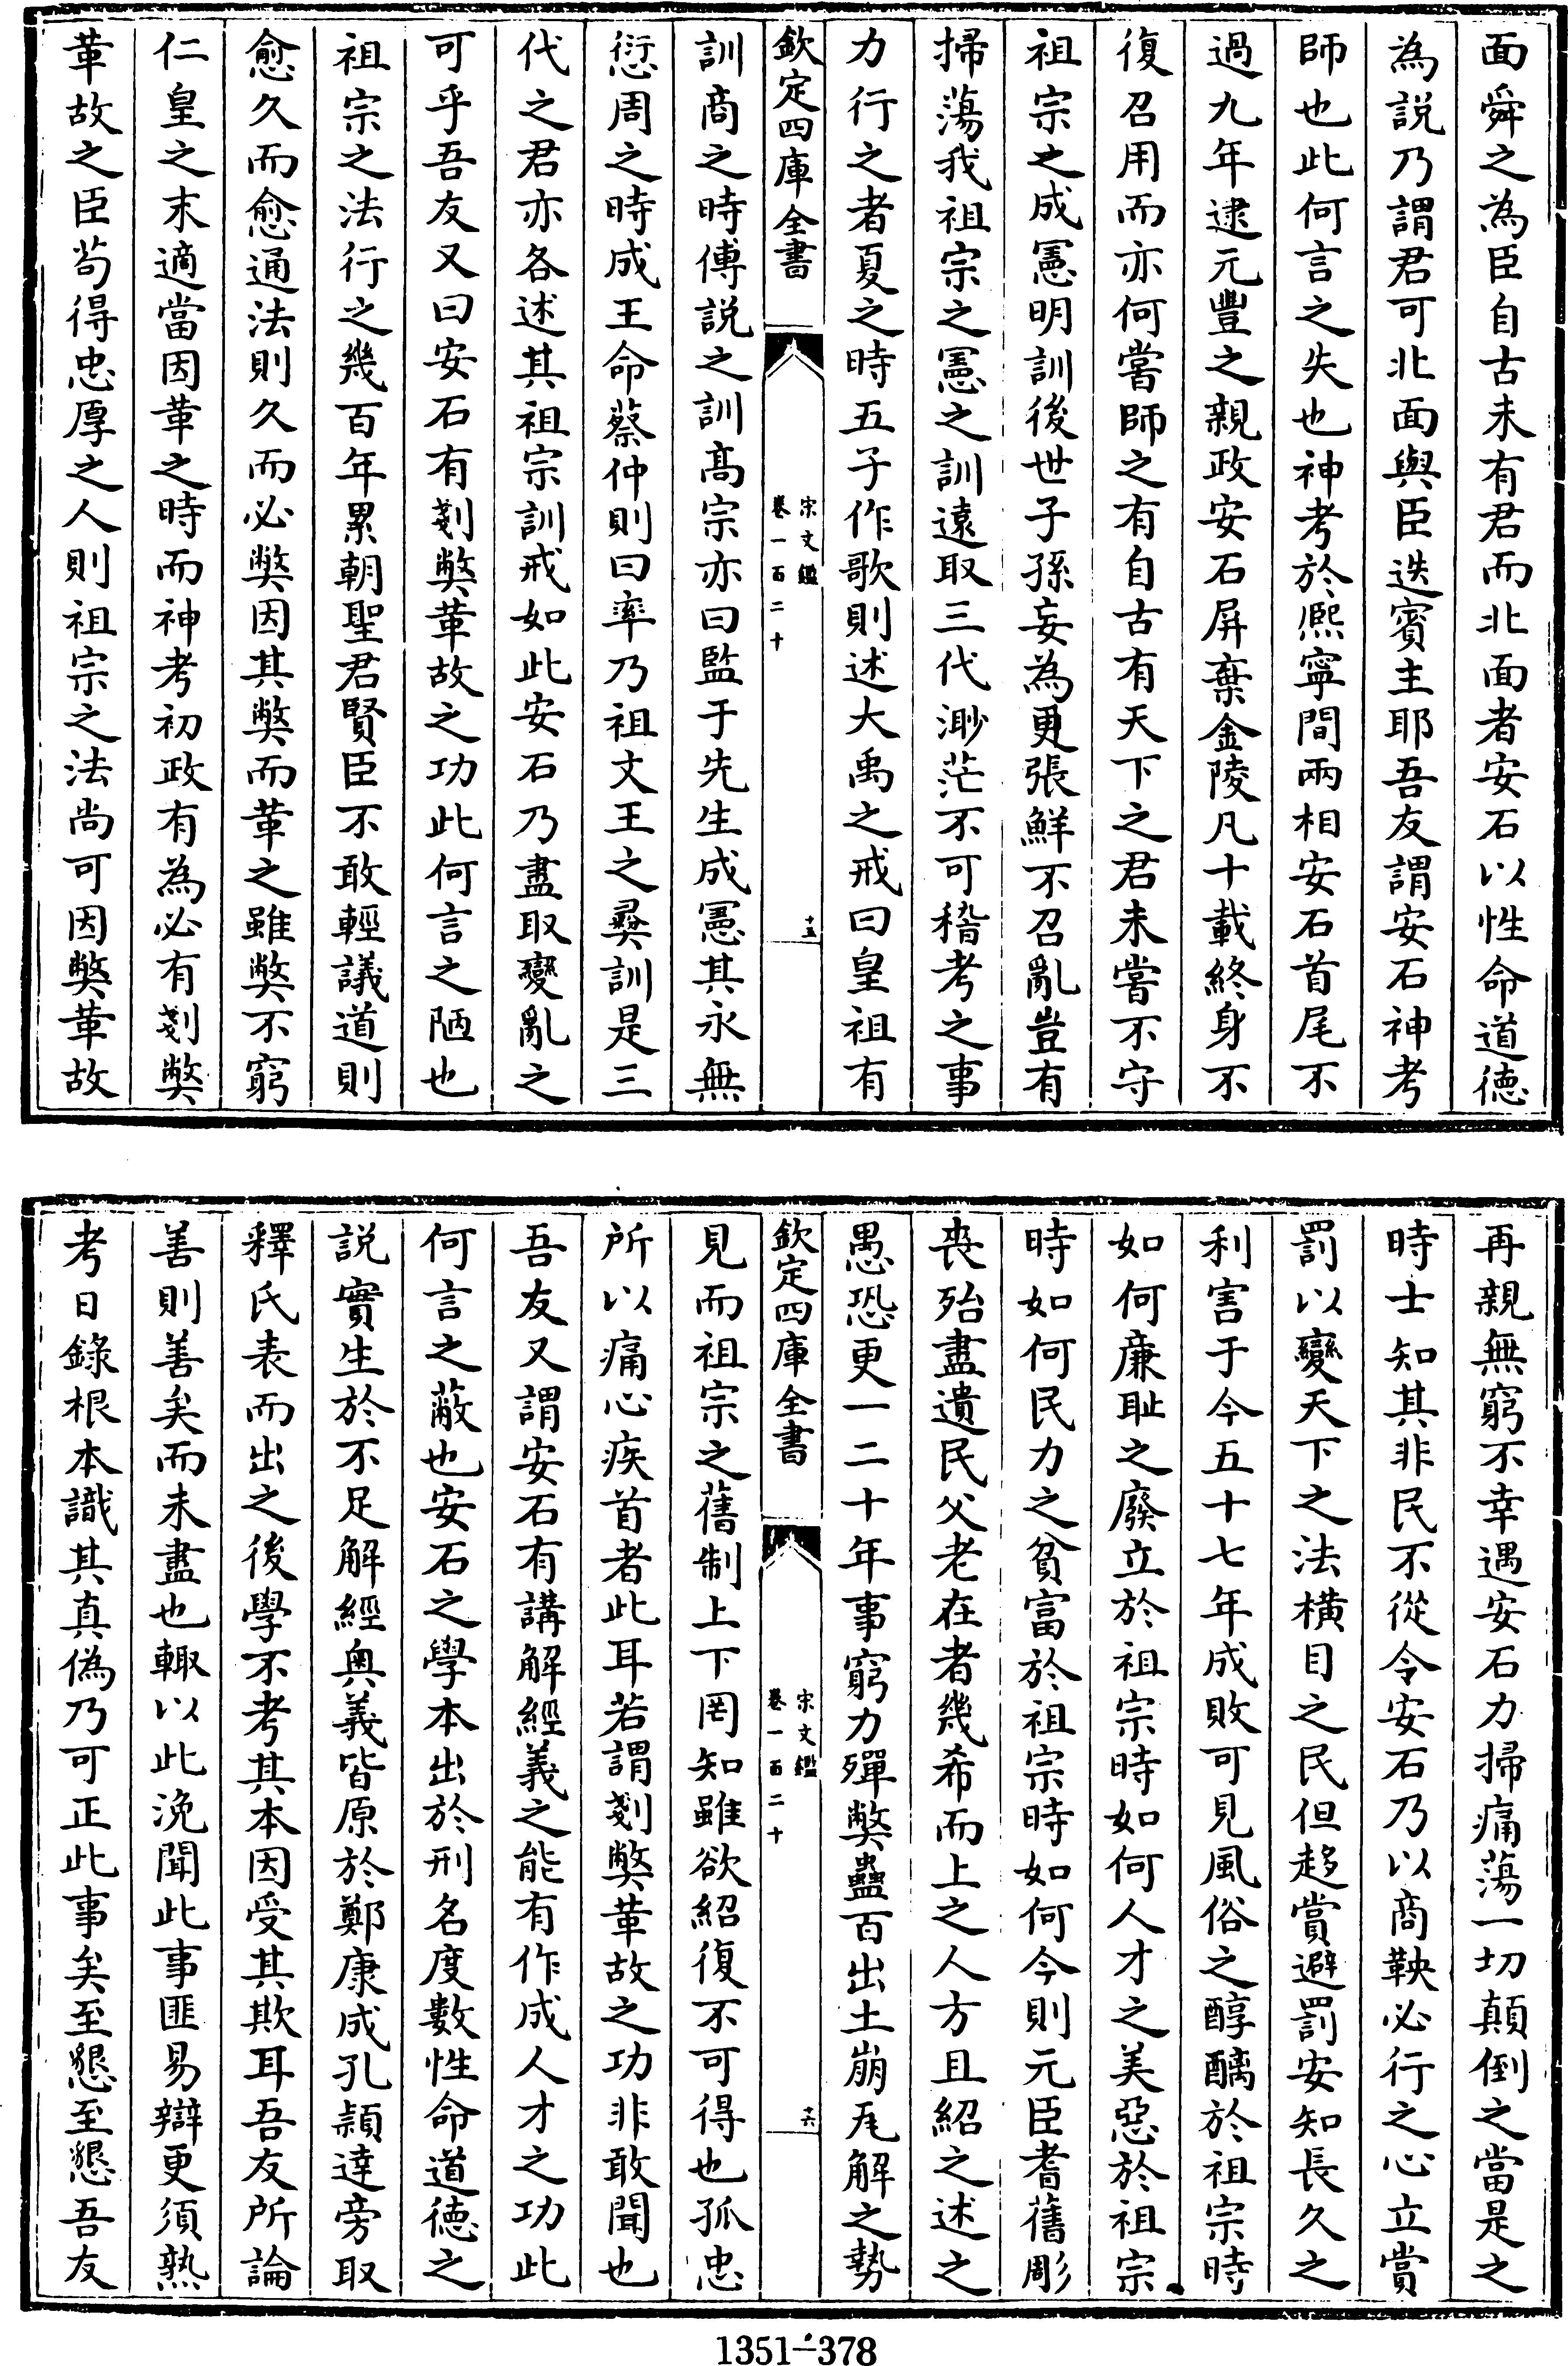 面舜之為臣自古未有君而北面者安石以性命道徳
為説乃謂君可北面與臣迭賓主耶吾友謂安石神考
師也此何言之失也神考於熈寧間兩相安石首尾不
過九年逮元豐之親政安石屏棄金陵凡十載終身不
復召用而亦何嘗師之有自古有天下之君未嘗不守
祖宗之成憲明訓後世子孫妄為更張鮮不召亂豈有
掃蕩我祖宗之憲之訓逺取三代渺茫不可稽考之事
力行之者夏之時五子作歌則述大禹之戒曰皇祖有
欽定四庫全書
宋文鑑
卷一百二十
十五
訓商之時傅説之訓髙宗亦曰監于先生成憲其永無
愆周之時成王命蔡仲則曰率乃祖文王之彛訓是三
代之君亦各述其祖宗訓戒如此安石乃盡取變亂之
可乎吾友又曰安石有剗弊革故之功此何言之陋也
祖宗之法行之幾百年累朝聖君賢臣不敢輕議道則
愈久而愈通法則久而必弊因其弊而革之雖弊不窮
仁皇之末適當因革之時而神考初政有為必有剗弊
革故之臣茍得忠厚之人則祖宗之法尚可因弊革故
再親無窮不幸遇安石力掃痛蕩一切顛倒之當是之
時士知其非民不從令安石乃以商鞅必行之心立賞
罰以變天下之法横目之民但趍賞避罰安知長久之
利害于今五十七年成敗可見風俗之醇醨於祖宗時
如何廉耻之廢立於祖宗時如何人才之美惡於祖宗
時如何民力之貧富於祖宗時如何今則元臣耆舊彫
喪殆盡遺民父老在者幾希而上之人方且紹之述之
愚恐更一二十年事窮力殫弊蠱百出土崩瓦解之勢
欽定四庫全書
宋文鑑
卷一百二十
十六
見而祖宗之舊制上下罔知雖欲紹復不可得也孤忠
所以痛心疾首者此耳若謂剗弊革故之功非敢聞也
吾友又謂安石有講解經義之能有作成人才之功此
何言之蔽也安石之學本出於刑名度數性命道徳之
説實生於不足解經奥義皆原於鄭康成孔頴達旁取
釋氏表而出之後學不考其本因受其欺耳吾友所論
善則善矣而未盡也輙以此浼聞此事匪易辯更須熟
考日錄根本識其真偽乃可正此事矣至懇至懇吾友
1351-378